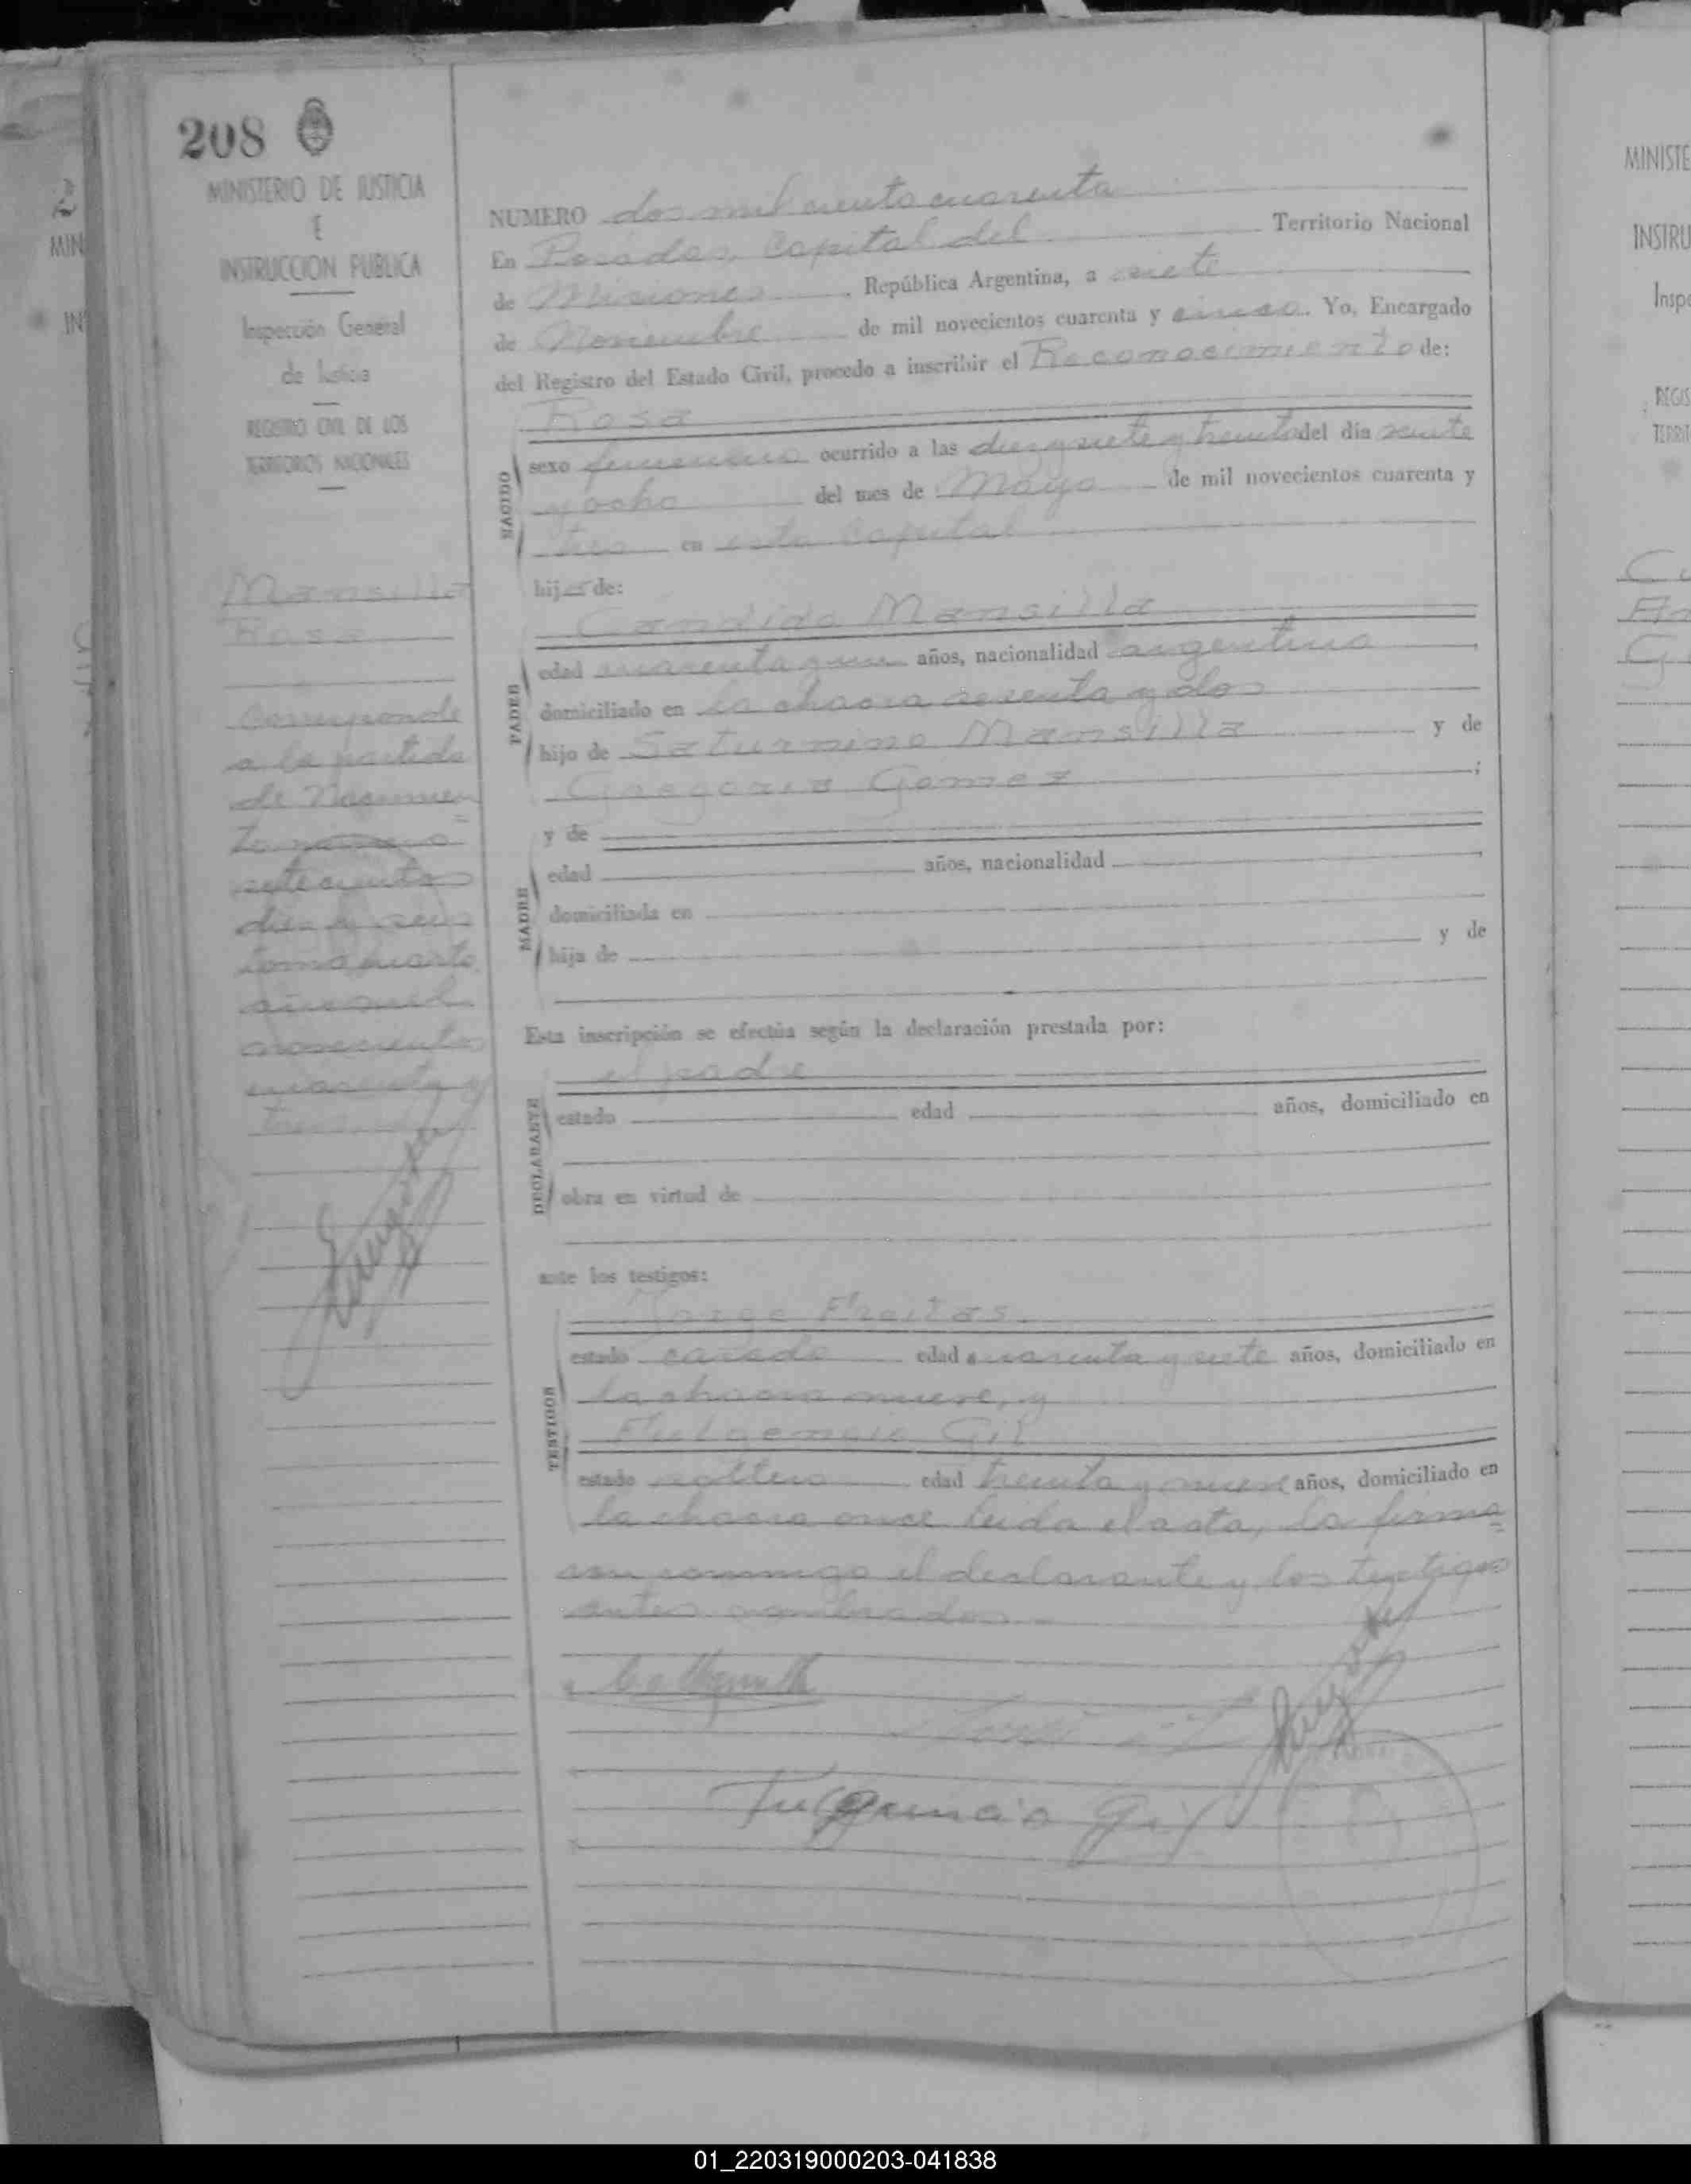 208
MINISTERIO DE JUSTICIA
E
INSTRUCCION PUBLICA
Inspección General
de Justicia
REGISTRO CIVIL DE LOS
TERRITORIOS NACIONALES
Mansilla
Rosa
Corresponde
a la partida
de Nacimien
to numero
setecientos
diez y seis
tomo cuarto
año mil
novecientos
cuarenta y
tres
NUMERO dos mil ciento cuarenta
En Posadas, Capital del Territorio Nacional
de Misiones, República Argentina, a siete
de Noviembre de mil novecientos cuarenta y cinco. Yo, Encargado
del Registro del Estado Civil, procedo a inscribir el Reconocimiento de:
NACIDO
Rosa
sexo femenino ocurrido a las diez y siete y treinta del día veinte
y ocho del mes de Mayo de mil novecientos cuarenta y
tres en esta Capital
hija de:
PADRE
Candido Mansilla
edad cuarenta y un años, nacionalidad argentino
domiciliado en la chacra sesenta y dos
hijo de Saturnino Mansilla y de
Gregoria Gomez ;
MADRE
y de
edad años, nacionalidad
domiciliada en
hija de y de
Esta inscripción se efectúa según la declaración prestada por:
DECLARANTE
el padre
estado edad años, domiciliado en
obra en virtud de
ante los testigos:
TESTIGOS
Jorge Freitas
estado casado edad cuarenta y siete años, domiciliado en
la chacra nueve, y
Fulgencio Gil
estado soltero edad treinta y nueve años, domiciliado en
la chacra once leida el acta, la firma
con conmigo el declarante y los testigos
antes nombrados.
Fulgencio Gil
MINISTE
INSTRU
Inspe
REGIS
TERRIT
MIN
IN
01_220319000203-041838